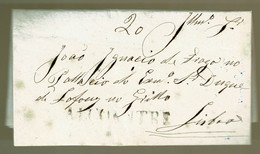 20 Illmo. Sr.
João Ignacio de
Pallacio do Exmo. Sr. Duque
de Lafoens no Grillo
Lisboa